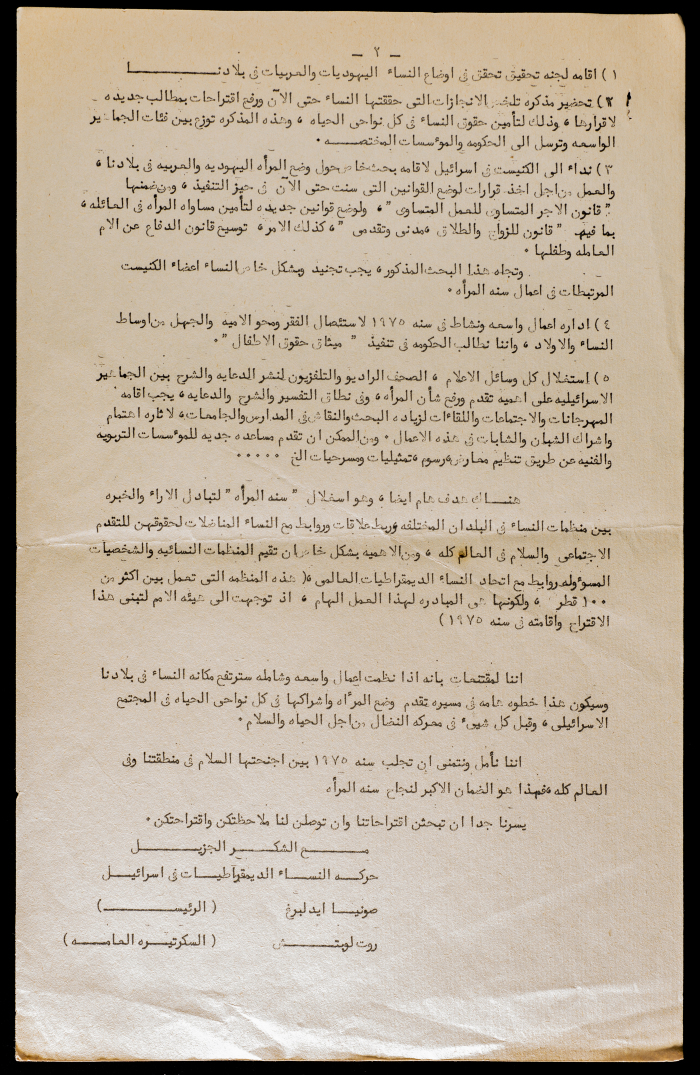 — ٢ —
١ ) اقامه لجنه تحقيق تحقق في اوضاع النساء اليهوديات والعربيات في بلادنـــــــــا
٢ ) تحضير مذكره تلخص الانجازات التي حققتها النساء حتى الآن ورفع اقتراحات بمطالب جديده
لاقرارها ، وذلك لتأمين حقوق النساء في كل نواحي الحياه ، وهذه المذكره توزع بين فئات الجماهير
الواسعه وترسل الى الحكومه والمؤسسات المختصــــه .
٣ ) نداء الى الكنيست في اسرائيل لاقامه بحث خاص حول وضع المرأه اليهوديه والعربيه في بلادنا ،
والعمل من اجل اخذ قرارات لوضع القوانين التي سنت حتى الآن في حيز التنفيذ ، ومن ضمنها
" قانون الاجر المتساوى للعمل المتساوى " ، ولوضع قوانين جديده لتأمين مساواه المرأه في العائله ،
بما فيها " قانون للزواج والطلاق ، مدني وتقدمى " ، كذلك الامر ، توسيع قانون الدفاع عن الام
العامله وطفلها .
وتجاه هذا البحث المذكور ، يجب تجنيد وبشكل خاص النساء اعضاء الكنيست
المرتبطات في اعمال سنه المرأه .
٤ ) اداره اعمال واسعه ونشاط في سنه ١٩٧٥ لاستئصال الفقر ومحو الاميه والجهل من اوساط
النساء والاولاد ، واننا نطالب الحكومه في تنفيذ " ميثاق حقوق الاطفال " .
٥ ) استغلال كل وسائل الاعلام ، الصحف الراديو والتلفزيون لنشر الدعايه والشرح بين الجماهير
الاسرائيليه على اهميه تقدم ورفع شأن المرأه ، وفى نطاق التفسير والشرح والدعايه ، يجب اقامه
المهرجانات والاجتماعات واللقاءات لزياده البحث والنقاش في المدارس والجامعات ، لاثاره اهتمام
واشراك الشبان والشابات في هذه الاعمال . ومن الممكن ان تقدم مساعده جديه للمؤسسات التربويه
والفنيه عن طريق تنظيم معارض ، رسوم ، تمثيليات ومسرحيات الخ . . . . .
هنــاك هدف هام ايضا ، وهو استغلال " سنه المرأه " لتبادل الاراء والخبره
بين منظمات النساء في البلدان المختلفه وربط علاقات وروابط مع النساء المناضلات لحقوقهن للتقدم
الاجتماعى والسلام في العالم كله ، ومن الاهميه بشكل خاص ان تقيم المنظمات النسائيه والشخصيات
المسؤوله روابط مع اتحاد النساء الديمقراطيات العالمى ، ( هذه المنظمه التى تعمل بين اكثر من
١٠٠ قطر ، ولكونها هى المبادره لهذا العمل الهام ، اذ توجهت الى هيئه الامم لتبنى هذا
الاقتراح واقامته في سنه ١٩٧٥ )
اننا لمقتنعات بانه اذا نظمت اعمال واسعه وشامله سترتفع مكانه النساء في بلادنا
وسيكون هذا خطوه هامه في مسيره تقدم وضع المرأه واشراكها في كل نواحى الحياه في المجتمع
الاسرائيلى ، وقبل كل شيىء في معركه النضال من اجل الحياه والسلام .
اننا نأمل ونتمنى ان تجلب سنه ١٩٧٥ بين اجنحتها السلام في منطقتنا وفى
العالم كله ، فهذا هو الضمان الاكبر لنجاح سنه المرأه
يسرنا جدا ان تبحثن اقتراحاتنا وان توصلن لنا ملاحظتكن واقتراحتكن .
مــــع الشكـــر الجزيــــل
حركــه النســاء الديمقراطيــات في اسرائيــل
صونيــا ايدلبرغ ( الرئيســــه )
روت لوبتــــش ( السكرتيــره العامــــه )